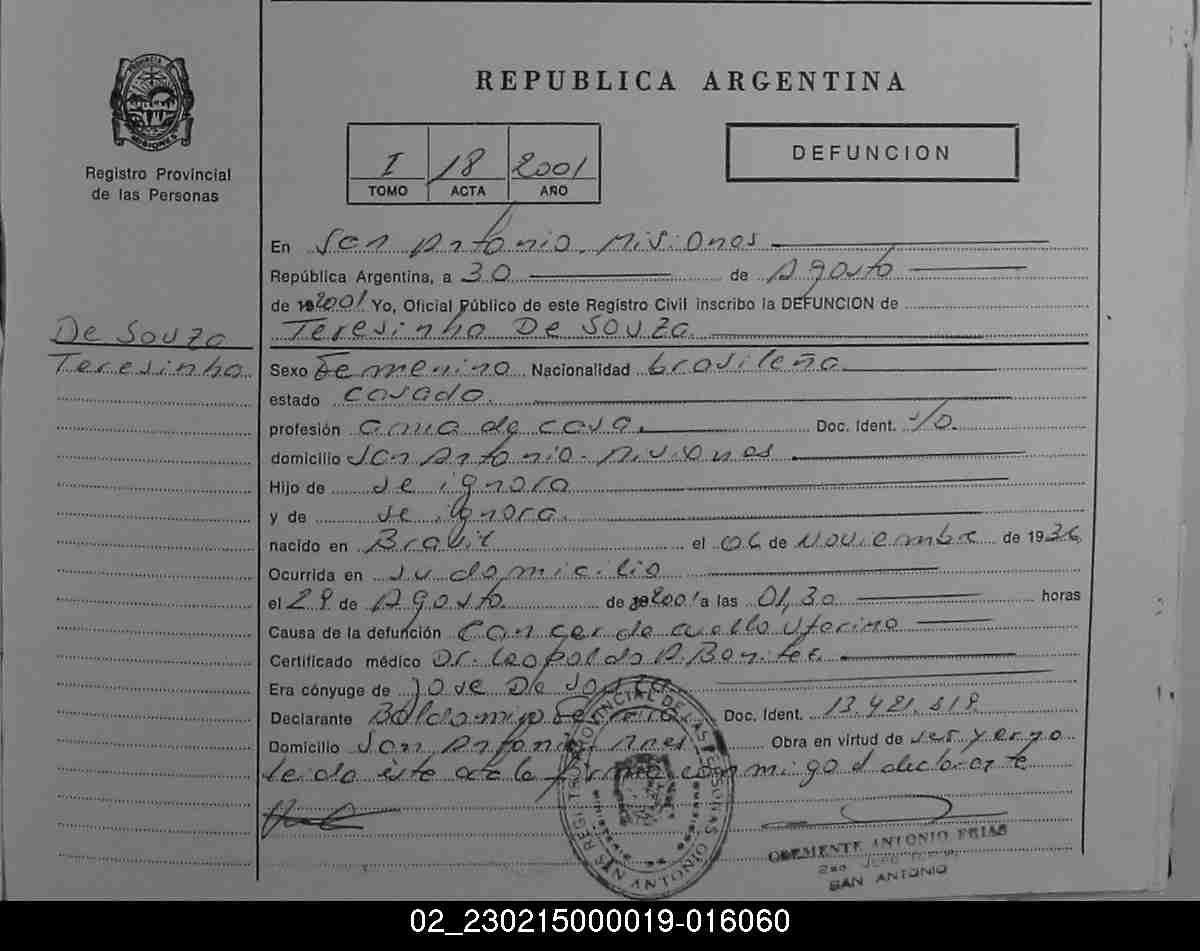 PROVINCIA DE
MISIONES
Registro Provincial
de las Personas
REPUBLICA ARGENTINA
I 18 2001
TOMO ACTA AÑO
DEFUNCION
En San Antonio, Misiones
República Argentina, a 30 de Agosto
de 2001 Yo, Oficial Público de este Registro Civil inscribo la DEFUNCION de
De Souza
Teresinha De Souza
Teresinha
Sexo Femenino Nacionalidad brasileña
estado casada.
profesión ama de casa. Doc. Ident. S/D.
domicilio San Antonio. Misiones
Hijo de se ignora
y de se ignora.
nacido en Brasil el 06 de Noviembre de 1936
Ocurrida en su domicilio
el 29 de Agosto de 2001 a las 01,30 horas
Causa de la defunción Cancer de cuello uterino
Certificado médico Dr. Leopoldo A. Benitez
Era cónyuge de Jose De Souza
Declarante Baldomiro Doc. Ident. 13.421.
Domicilio San Antonio, Mnes Obra en virtud de ser yerno
leida este acta la firma conmigo el declarante
REGISTRO PROVINCIAL DE LAS PERSONAS
SAN ANTONIO
CLEMENTE ANTONIO FRIAS
SAN ANTONIO
02_230215000019-016060